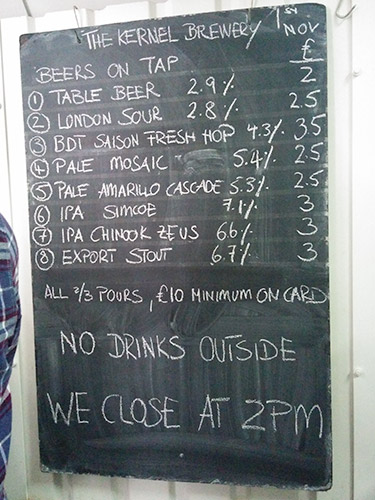 THE KERNEL BREWERY 1ST NOV
BEERS ON TAP £
① TABLE BEER 2.9% 2
② LONDON SOUR 2.8% 2.5
③ BDT SAISON FRESH HOP 4.3% 3.5
④ PALE MOSAIC 5.4% 2.5
⑤ PALE AMARILLO CASCADE 5.3% 2.5
⑥ IPA SIMCOE 7.1% 3
⑦ IPA CHINOOK ZEUS 6.6% 3
⑧ EXPORT STOUT 6.7% 3
ALL 2/3 POURS, £10 MINIMUM ON CARD
NO DRINKS OUTSIDE
WE CLOSE AT 2PM